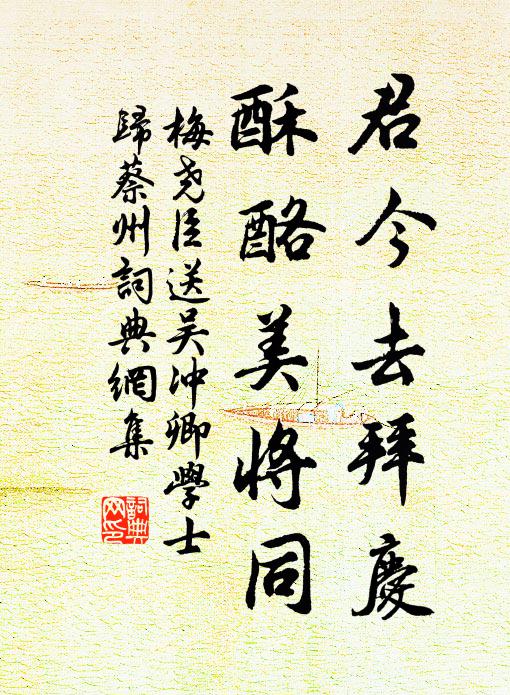 君今去拜慶
酥酪美將同
梅堯臣送吴冲卿學士
歸蔡州詞典網集
詞典
网印